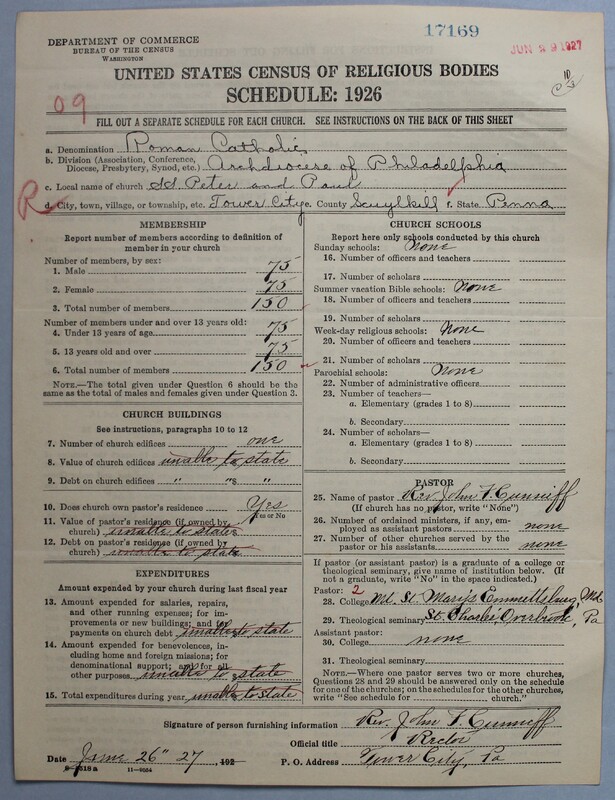 17169
DEPARTMENT OF COMMERCE
BUREAU OF THE CENSUS
WASHINGTON
JUN 29 1927
UNITED STATES CENSUS OF RELIGIOUS BODIES
SCHEDULE: 1926
09
FILL OUT A SEPARATE SCHEDULE FOR EACH CHURCH. SEE INSTRUCTIONS ON THE BACK OF THIS SHEET
a. Denomination Roman Catholic
b. Division (Association, Conference, Diocese, Presbytery, Synod, etc.) Archdiocese of Philadelphia
c. Local name of church SS Peter and Paul
R
d. City, town, village, or township, etc. Tower City e. County Scuylkill f. State Penna
MEMBERSHIP
Report number of members according to definition of member in your church
Number of members, by sex:
1. Male 75
2. Female 75
3. Total number of members 150
Number of members under and over 13 years old:
4. Under 13 years of age 75
5. 13 years old and over 75
6. Total number of members 150
NOTE.—The total given under Question 6 should be the same as the total of males and females given under Question 3.
CHURCH BUILDINGS
See instructions, paragraphs 10 to 12
7. Number of church edifices one
8. Value of church edifices unable to state
9. Debt on church edifices " " "
10. Does church own pastor's residence? Yes
Yes or No
11. Value of pastor's residence (if owned by church) unable to state
12. Debt on pastor's residence (if owned by church) unable to state
EXPENDITURES
Amount expended by your church during last fiscal year
13. Amount expended for salaries, repairs, and other running expenses; for improvements or new buildings; and for payments on church debt unable to state
14. Amount expended for benevolences, including home and foreign missions; for denominational support; and for all other purposes unable to state
15. Total expenditures during year unable to state
CHURCH SCHOOLS
Report here only schools conducted by this church
Sunday schools: None
16. Number of officers and teachers
17. Number of scholars
Summer vacation Bible schools: None
18. Number of officers and teachers
19. Number of scholars
Week-day religious schools: None
20. Number of officers and teachers
21. Number of scholars
Parochial schools: None
22. Number of administrative officers
23. Number of teachers—
a. Elementary (grades 1 to 8)
b. Secondary
24. Number of scholars—
a. Elementary (grades 1 to 8)
b. Secondary
PASTOR
25. Name of pastor Rev. John V. Cunniff
(If church has no pastor, write "None")
26. Number of ordained ministers, if any, employed as assistant pastors none
27. Number of other churches served by the pastor or his assistants none
If pastor (or assistant pastor) is a graduate of a college or theological seminary, give name of institution below. (If not a graduate, write "No" in the space indicated.)
Pastor: 2
28. College Mt. St. Mary's Emmettsburg, Md.
29. Theological seminary St. Charles Overbrook, Pa
Assistant pastor:
30. College none
31. Theological seminary
NOTE.—Where one pastor serves two or more churches, Questions 28 and 29 should be answered only on the schedule for one of the churches; on the schedules for the other churches, write "See schedule for church."
Signature of person furnishing information Rev. John V. Cunniff
Official title Rector
Date June 26" 27, 192 P. O. Address Tower City, Pa
8—2518a 11—8054